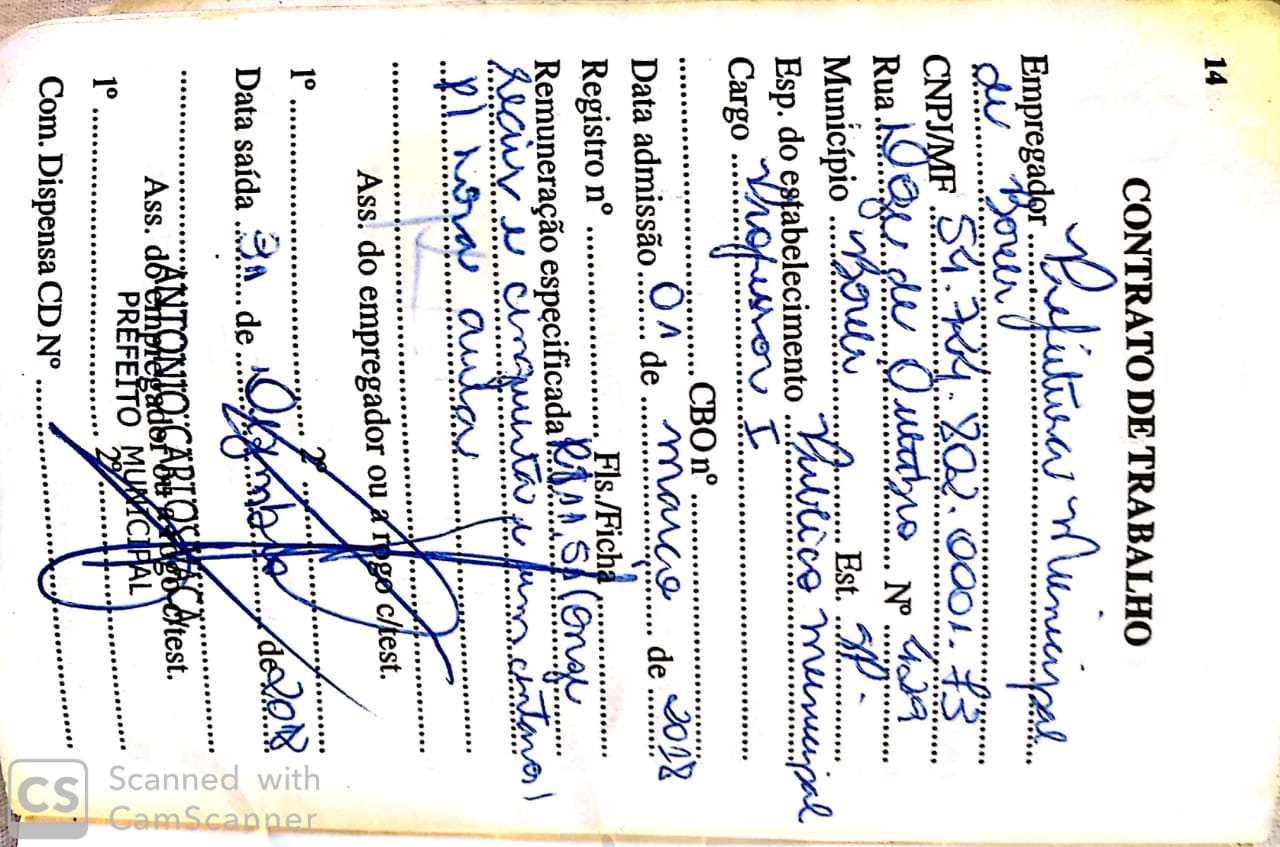 14
CONTRATO DE TRABALHO
Empregador Prefeitura Municipal
de
CNPJ/MF 54.
Rua Doze de Outubro Nº 429
Município Est. SP.
Esp. do estabelecimento Publico municipal
Cargo Professor I
CBO nº
Data admissão 01 de março de 2018
Registro nº Fls/Ficha
Remuneração especificada R$ 11,51 (onze
reais e cinquenta e um centavos)
p/ hora aula
Ass. do empregador ou a rogo c/test.
1º 2º
Data saída 31 de Dezembro de 2018
ANTONIO CARLOS VACA
Ass. do empregador ou a rogo c/test.
PREFEITO MUNICIPAL
1º 2º
Com. Dispensa CD Nº
CS Scanned with
CamScanner